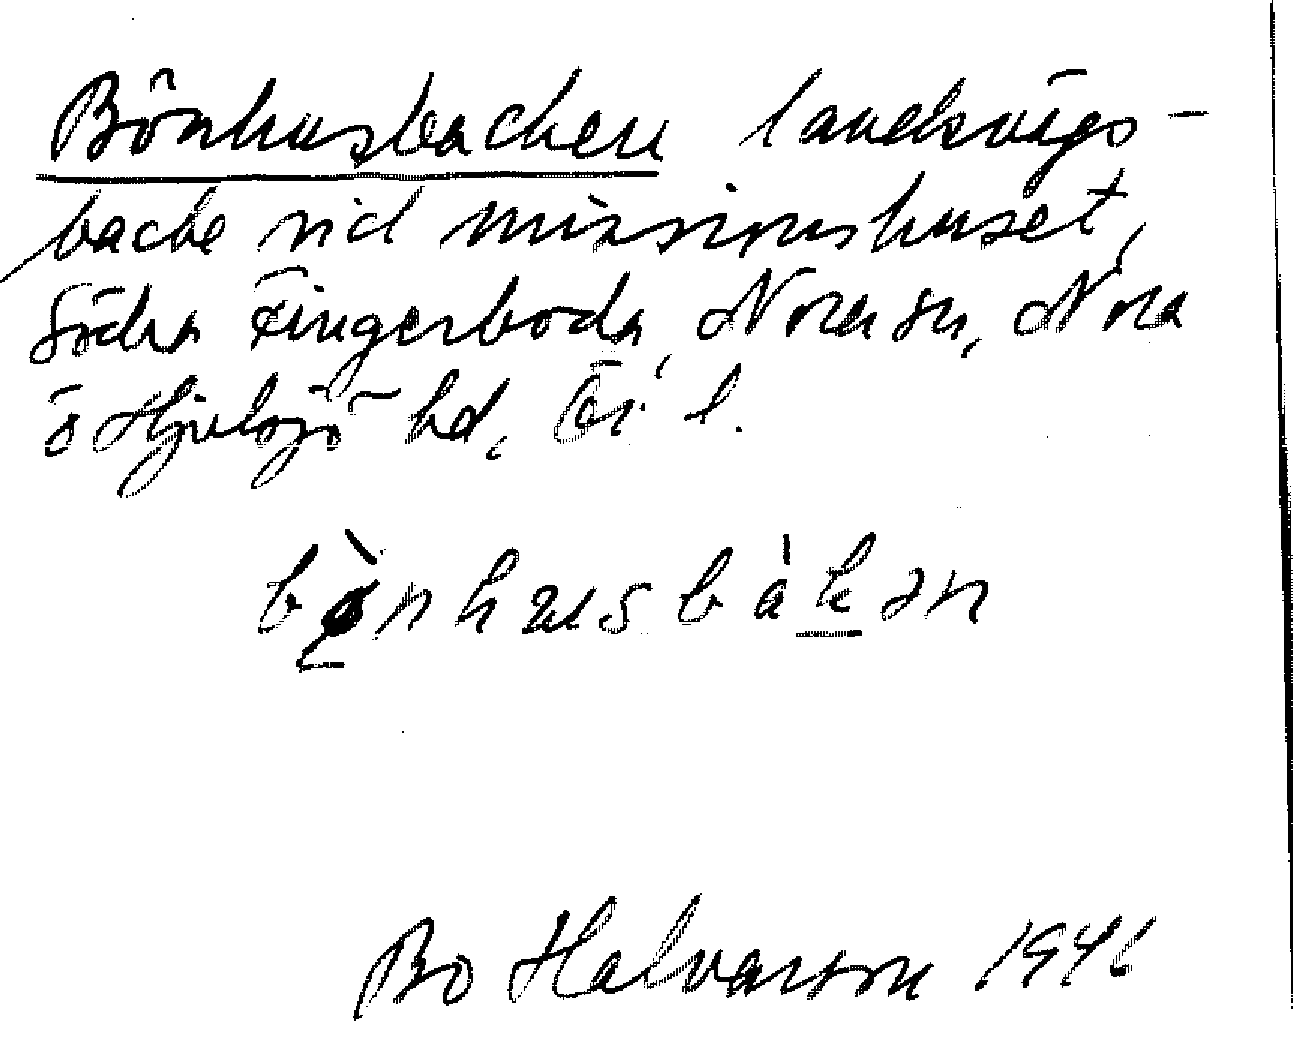 Bönhusbacken landsvägs-
backe vid missionshuset,
Södra Fingerboda, Nora sn, Nora
o Hjulsjö hd, Ör. l.
bònhusbàkən
Bo Halvarson 1946